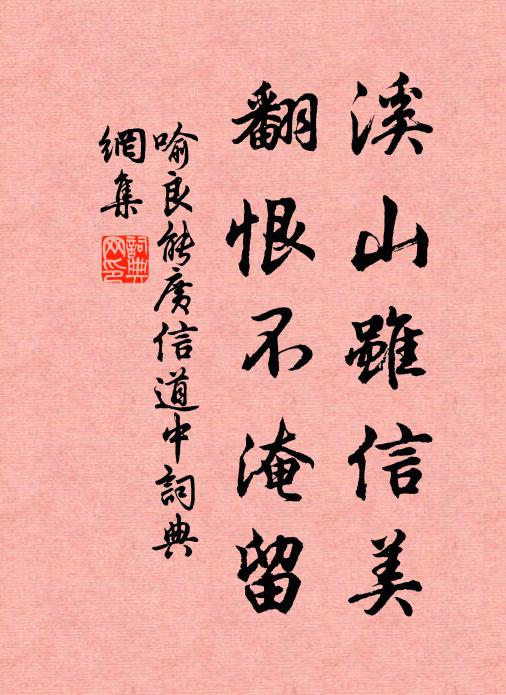 溪山雖信美
翻恨不淹留
喻良能廣信道中詞典
網集
詞典
网印